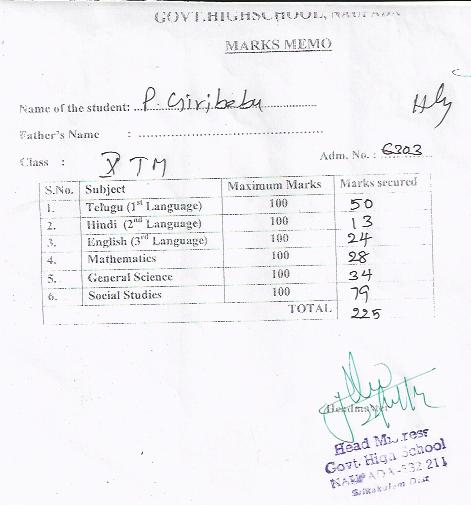 GOVT.HIGHSCHOOL, NAUPADA
MARKS MEMO
Name of the student: P. Giribabu
Hly
Father's Name :
Class : X TM
Adm. No. : 6303
S.No. Subject Maximum Marks Marks secured
1. Telugu (1st Language) 100 50
2. Hindi (2nd Language) 100 13
3. English (3rd Language) 100 24
4. Mathematics 100 28
5. General Science 100 34
6. Social Studies 100 79
TOTAL 225
Headmaster
Head Mistress
Govt. High School
NAUPADA-532 211
Srikakulam Dist